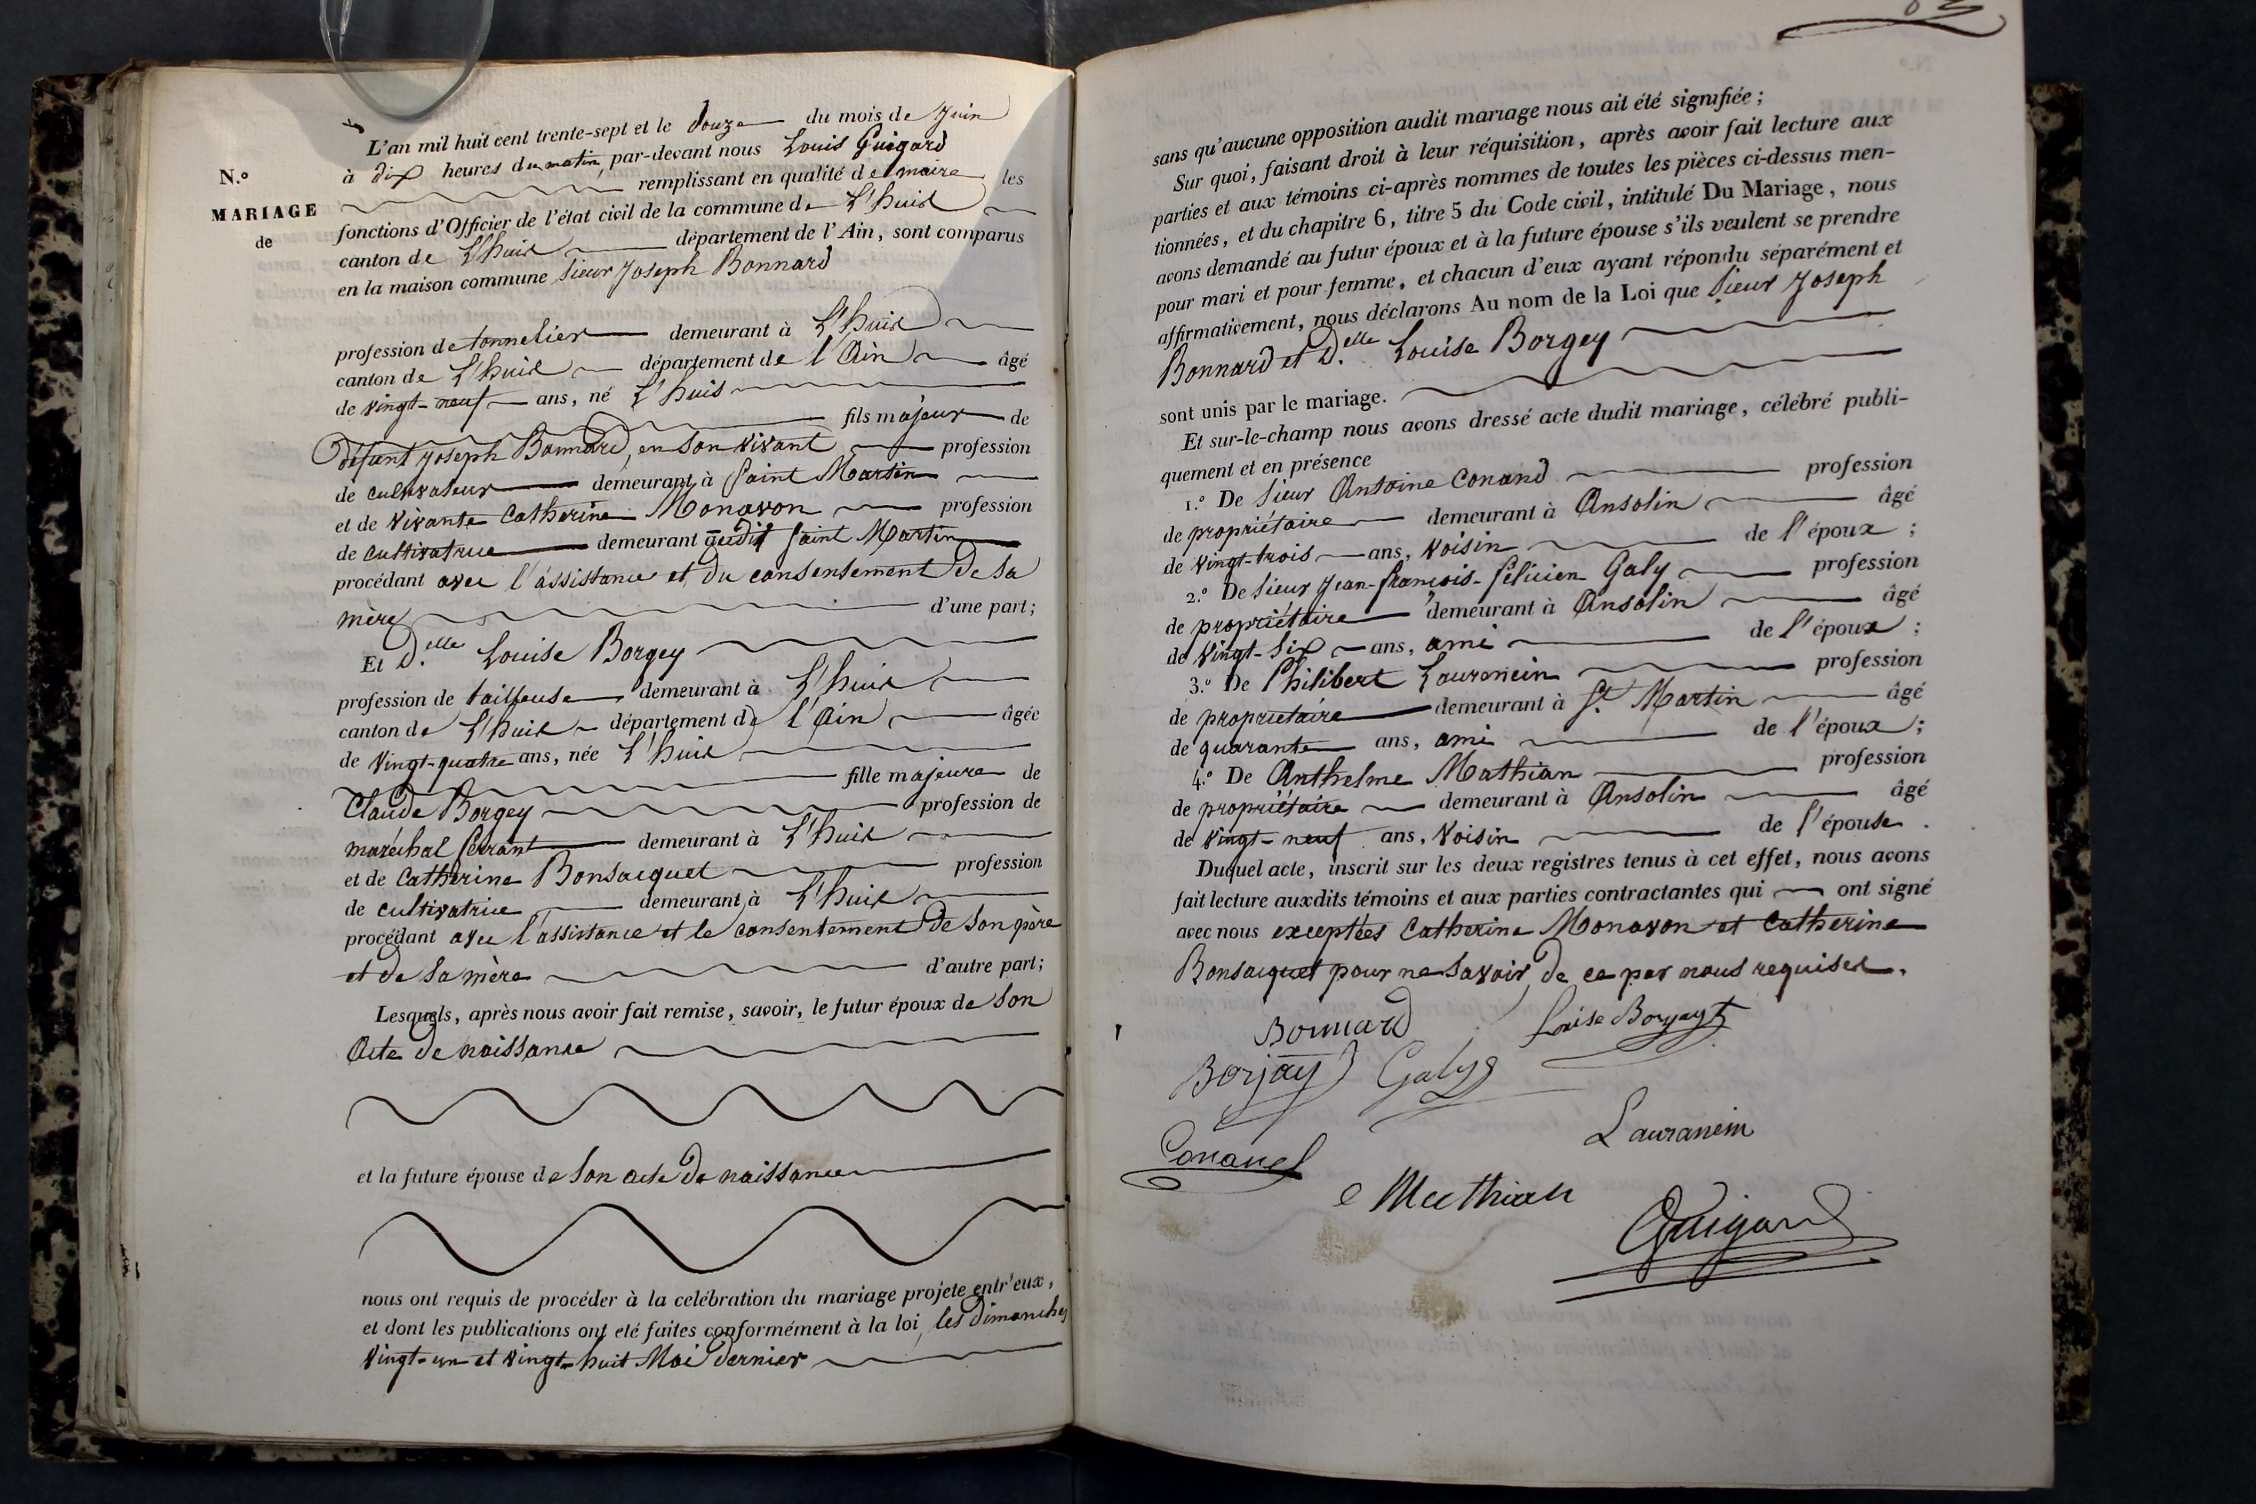 N.º
MARIAGE
de
L'an mil huit cent trente-sept et le douze du mois de Juin
à dix heures du matin, par-devant nous Louis Guigard
remplissant en qualité de maire les
fonctions d'Officier de l'état civil de la commune de L'huis
canton de L'huis département de l'Ain, sont comparus
en la maison commune Sieur Joseph Bonnard
profession de tonnelier demeurant à L'huis
canton de L'huis département de l'Ain âgé
de vingt-neuf ans, né L'huis
fils majeur de
défunt Joseph Bonnard, en son vivant profession
de cultivateur demeurant à Saint Martin
et de vivante Catherine Monavon profession
de cultivatrice demeurant audit Saint Martin
procédant avec l'assistance et du consensement de sa
mère d'une part;
Et D.elle Louise Borgey
profession de tailleuse demeurant à L'huis
canton de L'huis département de l'Ain âgée
de vingt-quatre ans, née L'huis
fille majeure de
Claude Borgey profession de
maréchal ferrant demeurant à L'huis
et de Catherine Bonsacquet profession
de cultivatrice demeurant à L'huis
procédant avec l'assistance et le consentement de son père
et de sa mère d'autre part;
Lesquels, après nous avoir fait remise, savoir, le futur époux de son
Acte de naissance
et la future épouse de son acte de naissance
nous ont requis de procéder à la celébration du mariage projete entr'eux,
et dont les publications ont eté faites conformément à la loi, les dimanches
vingt-un et vingt-huit Mai dernier
sans qu'aucune opposition audit mariage nous ait été signifiée;
Sur quoi, faisant droit à leur réquisition, après avoir fait lecture aux
parties et aux témoins ci-après nommes de toutes les pièces ci-dessus men-
tionnées, et du chapitre 6, titre 5 du Code civil, intitulé Du Mariage, nous
avons demandé au futur époux et à la future épouse s'ils veulent se prendre
pour mari et pour femme, et chacun d'eux ayant répondu séparément et
affirmativement, nous déclarons Au nom de la Loi que Sieur Joseph
Bonnard et D.elle Louise Borgey
sont unis par le mariage.
Et sur-le-champ nous avons dressé acte dudit mariage, célébré publi-
quement et en présence
1.º De Sieur Antoine Conand profession
de propriétaire demeurant à Ansolin âgé
de vingt-trois ans, voisin de l'époux;
2.º De Sieur Jean-François-Félicien Galy profession
de propriétaire demeurant à Ansolin âgé
de vingt-six ans, ami de l'époux;
3.º De Philibert Lauranein profession
de propriétaire demeurant à St Martin âgé
de quarante ans, ami de l'époux;
4.º De Anthelme Mathian profession
de propriétaire demeurant à Ansolin âgé
de vingt-neuf ans, voisin de l'épouse.
Duquel acte, inscrit sur les deux registres tenus à cet effet, nous avons
fait lecture auxdits témoins et aux parties contractantes qui ont signé
avec nous exceptées Catherine Monavon et Catherine
Bonsacquet pour ne savoir, de ce par nous requises.
Bonnard Louise Borgey
Borjay Galy
Lauranein
Conand
Mathian
Guigard